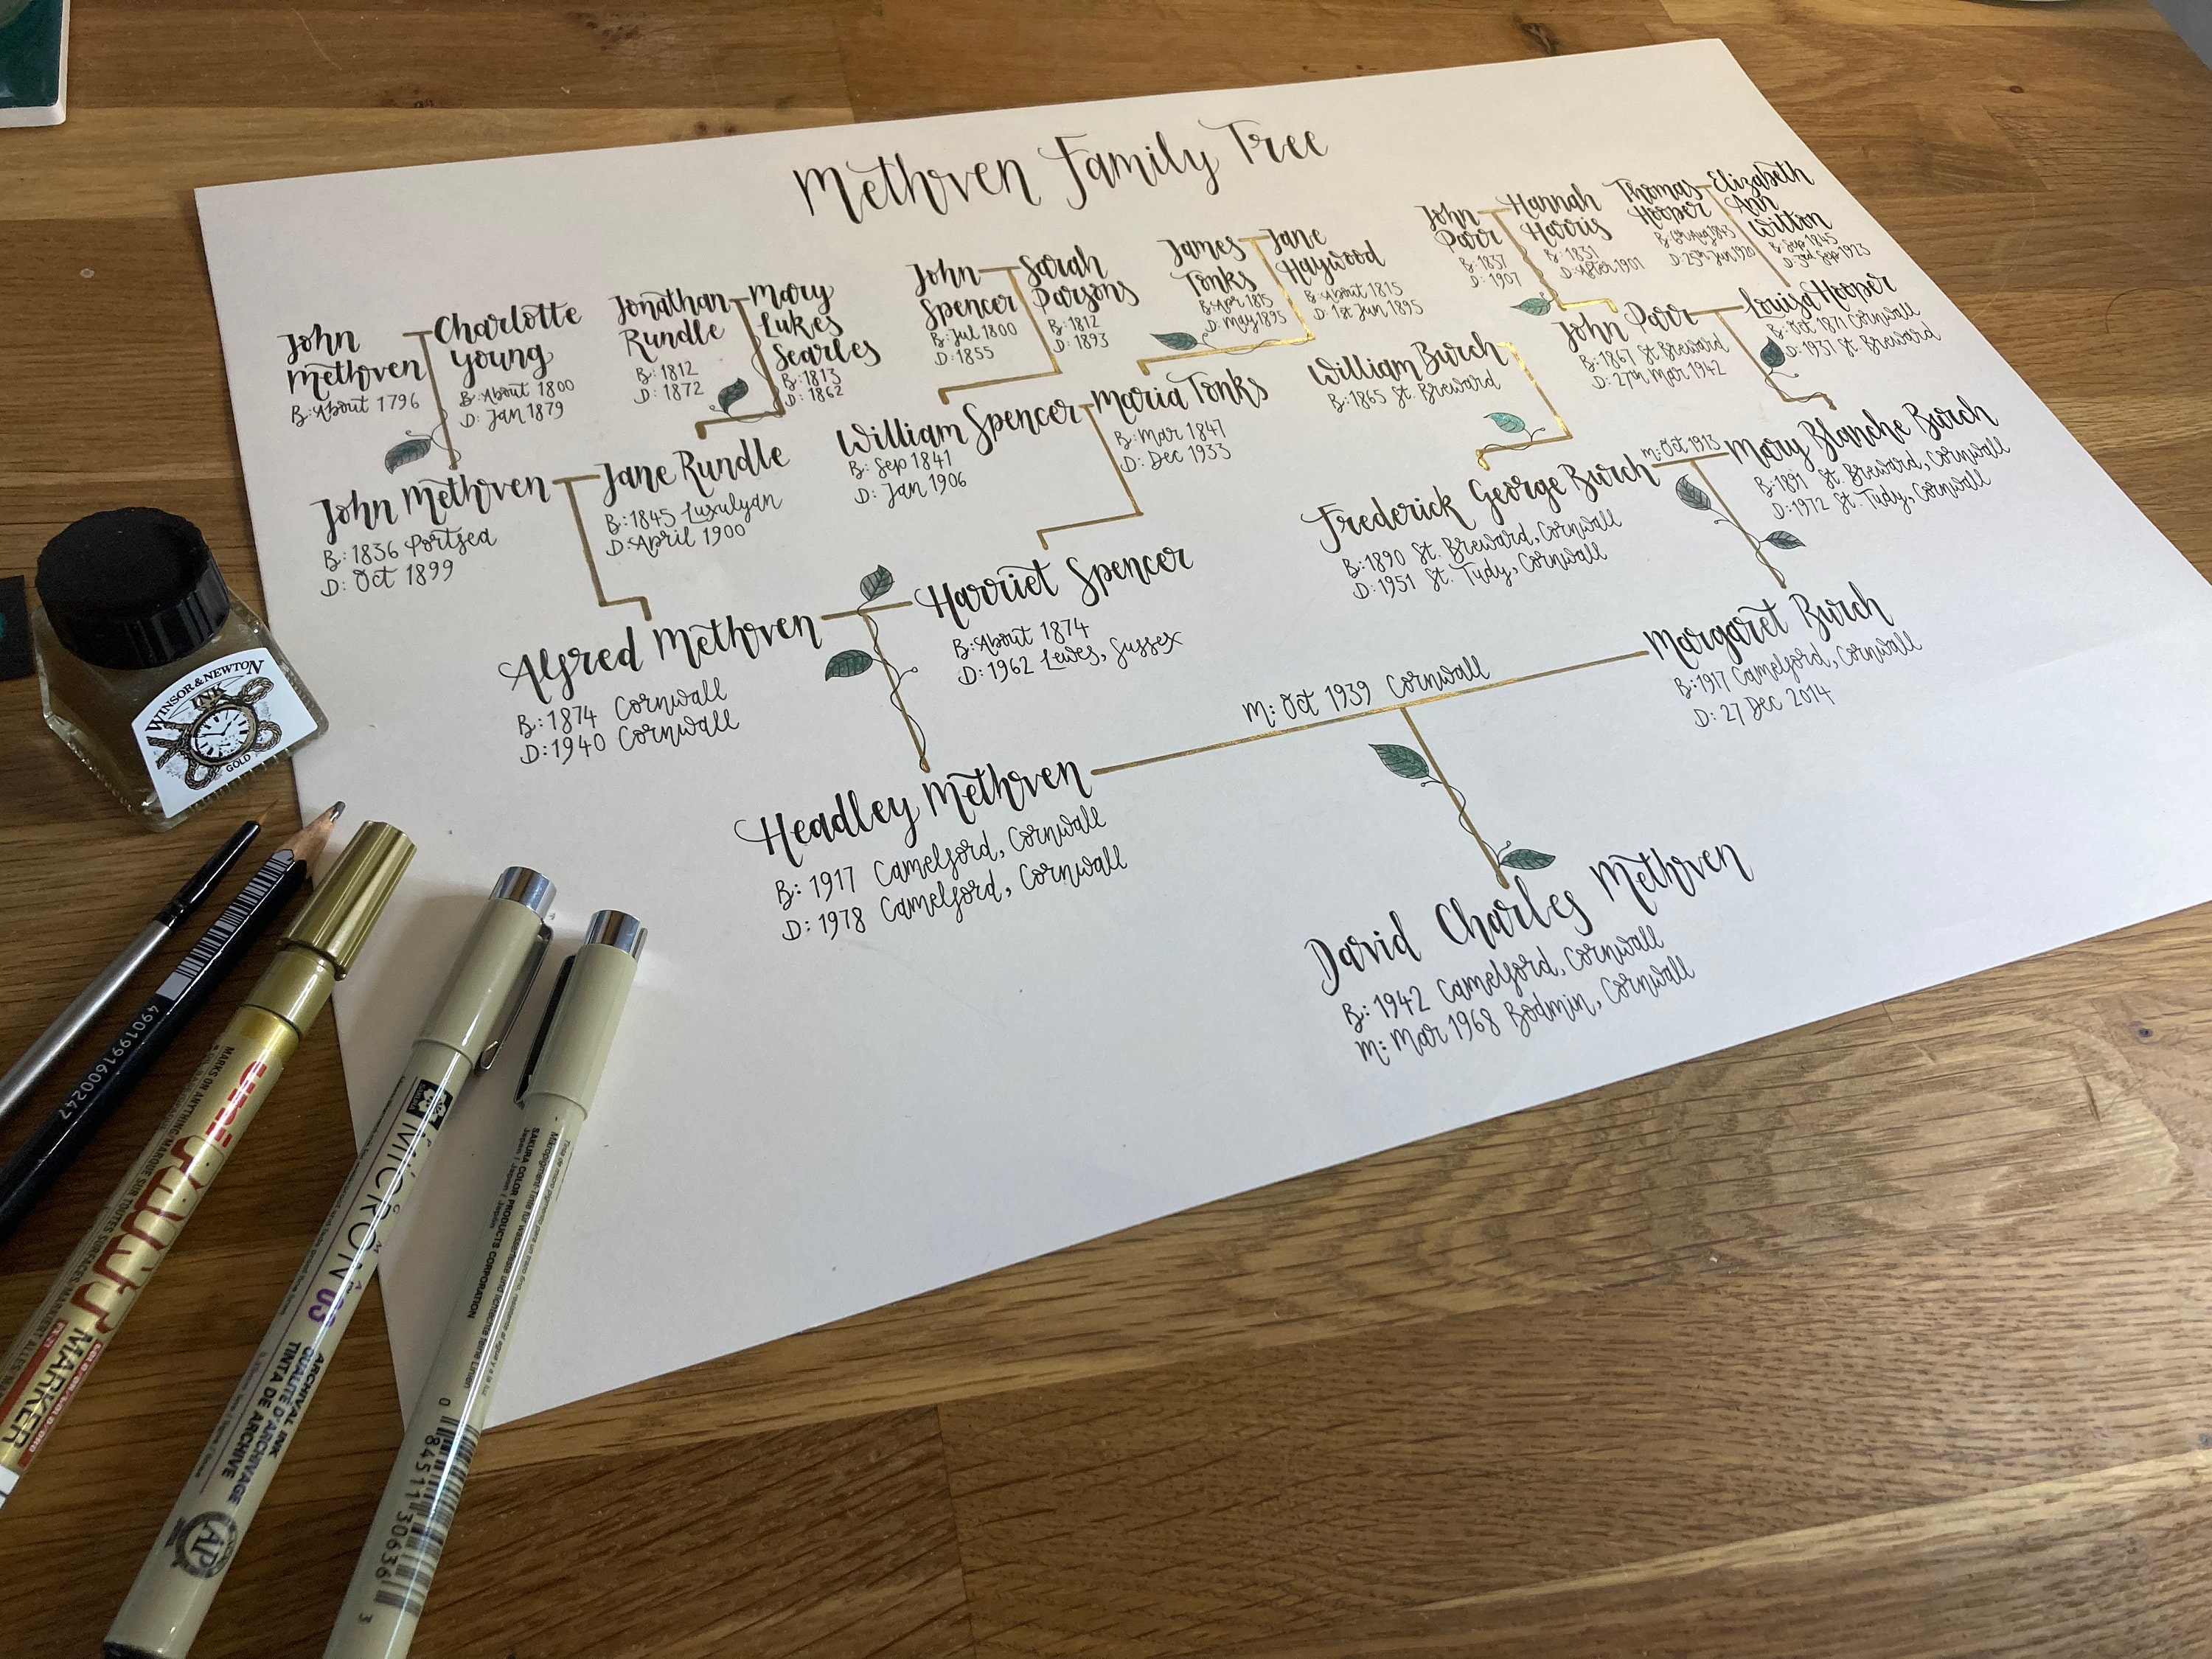 Methven Family Tree
John
Methven
B: About 1796
Charlotte
Young
B: About 1800
D: Jan 1879
Jonathan
Rundle
B: 1812
D: 1872
Mary
Lukes
Searles
B: 1813
D: 1862
John
Spencer
B: Jul 1800
D: 1855
Sarah
Parsons
B: 1812
D: 1893
James
Tonks
B: Apr 1815
D: May 1895
Jane
Haywood
B: About 1815
D: 1st Jun 1895
John
Parr
B: 1837
D: 1907
Hannah
Harris
B: 1831
D: After 1901
Thomas
Hooper
B: 6th Aug 1843
D: 25th Jun 1920
Elizabeth
Ann
Wilton
B: Sep 1845
D: 3rd Sep 1923
John Methven
B: 1836 Portsea
D: Oct 1899
Jane Rundle
B: 1845 Luxulyan
D: April 1900
William Spencer
B: Sep 1841
D: Jan 1906
Maria Tonks
B: Mar 1847
D: Dec 1933
William Burch
B: 1865 St. Breward
John Parr
B: 1867 St. Breward
D: 27th Mar 1942
Louisa Hooper
B: Oct 1871 Cornwall
D: 1937 St. Breward
Alfred Methven
B: 1874 Cornwall
D: 1940 Cornwall
Harriet Spencer
B: About 1874
D: 1962 Lewes, Sussex
Frederick George Burch
B: 1890 St. Breward, Cornwall
D: 1951 St. Tudy, Cornwall
M: Oct 1913
Mary Blanche Burch
B: 1891 St. Breward, Cornwall
D: 1972 St. Tudy, Cornwall
Headley Methven
B: 1917 Camelford, Cornwall
D: 1978 Camelford, Cornwall
M: Oct 1939 Cornwall
Margaret Burch
B: 1917 Camelford, Cornwall
D: 27 Dec 2014
David Charles Methven
B: 1942 Camelford, Cornwall
M: Mar 1968 Bodmin, Cornwall
WINSOR & NEWTON
INK
GOLD
4901991600247
uni
PAINT
MARKER
MARKS ON ANYTHING/MARQUE SUR TOUTES SURFACES/MARKIERT ALLES
MICRON
ARCHIVAL INK
QUALITÉ D'ARCHIVAGE
TINTA DE ARCHIVE
AP
SAKURA COLOR PRODUCTS CORPORATION
Japan / Japon
0 84511 30636 3